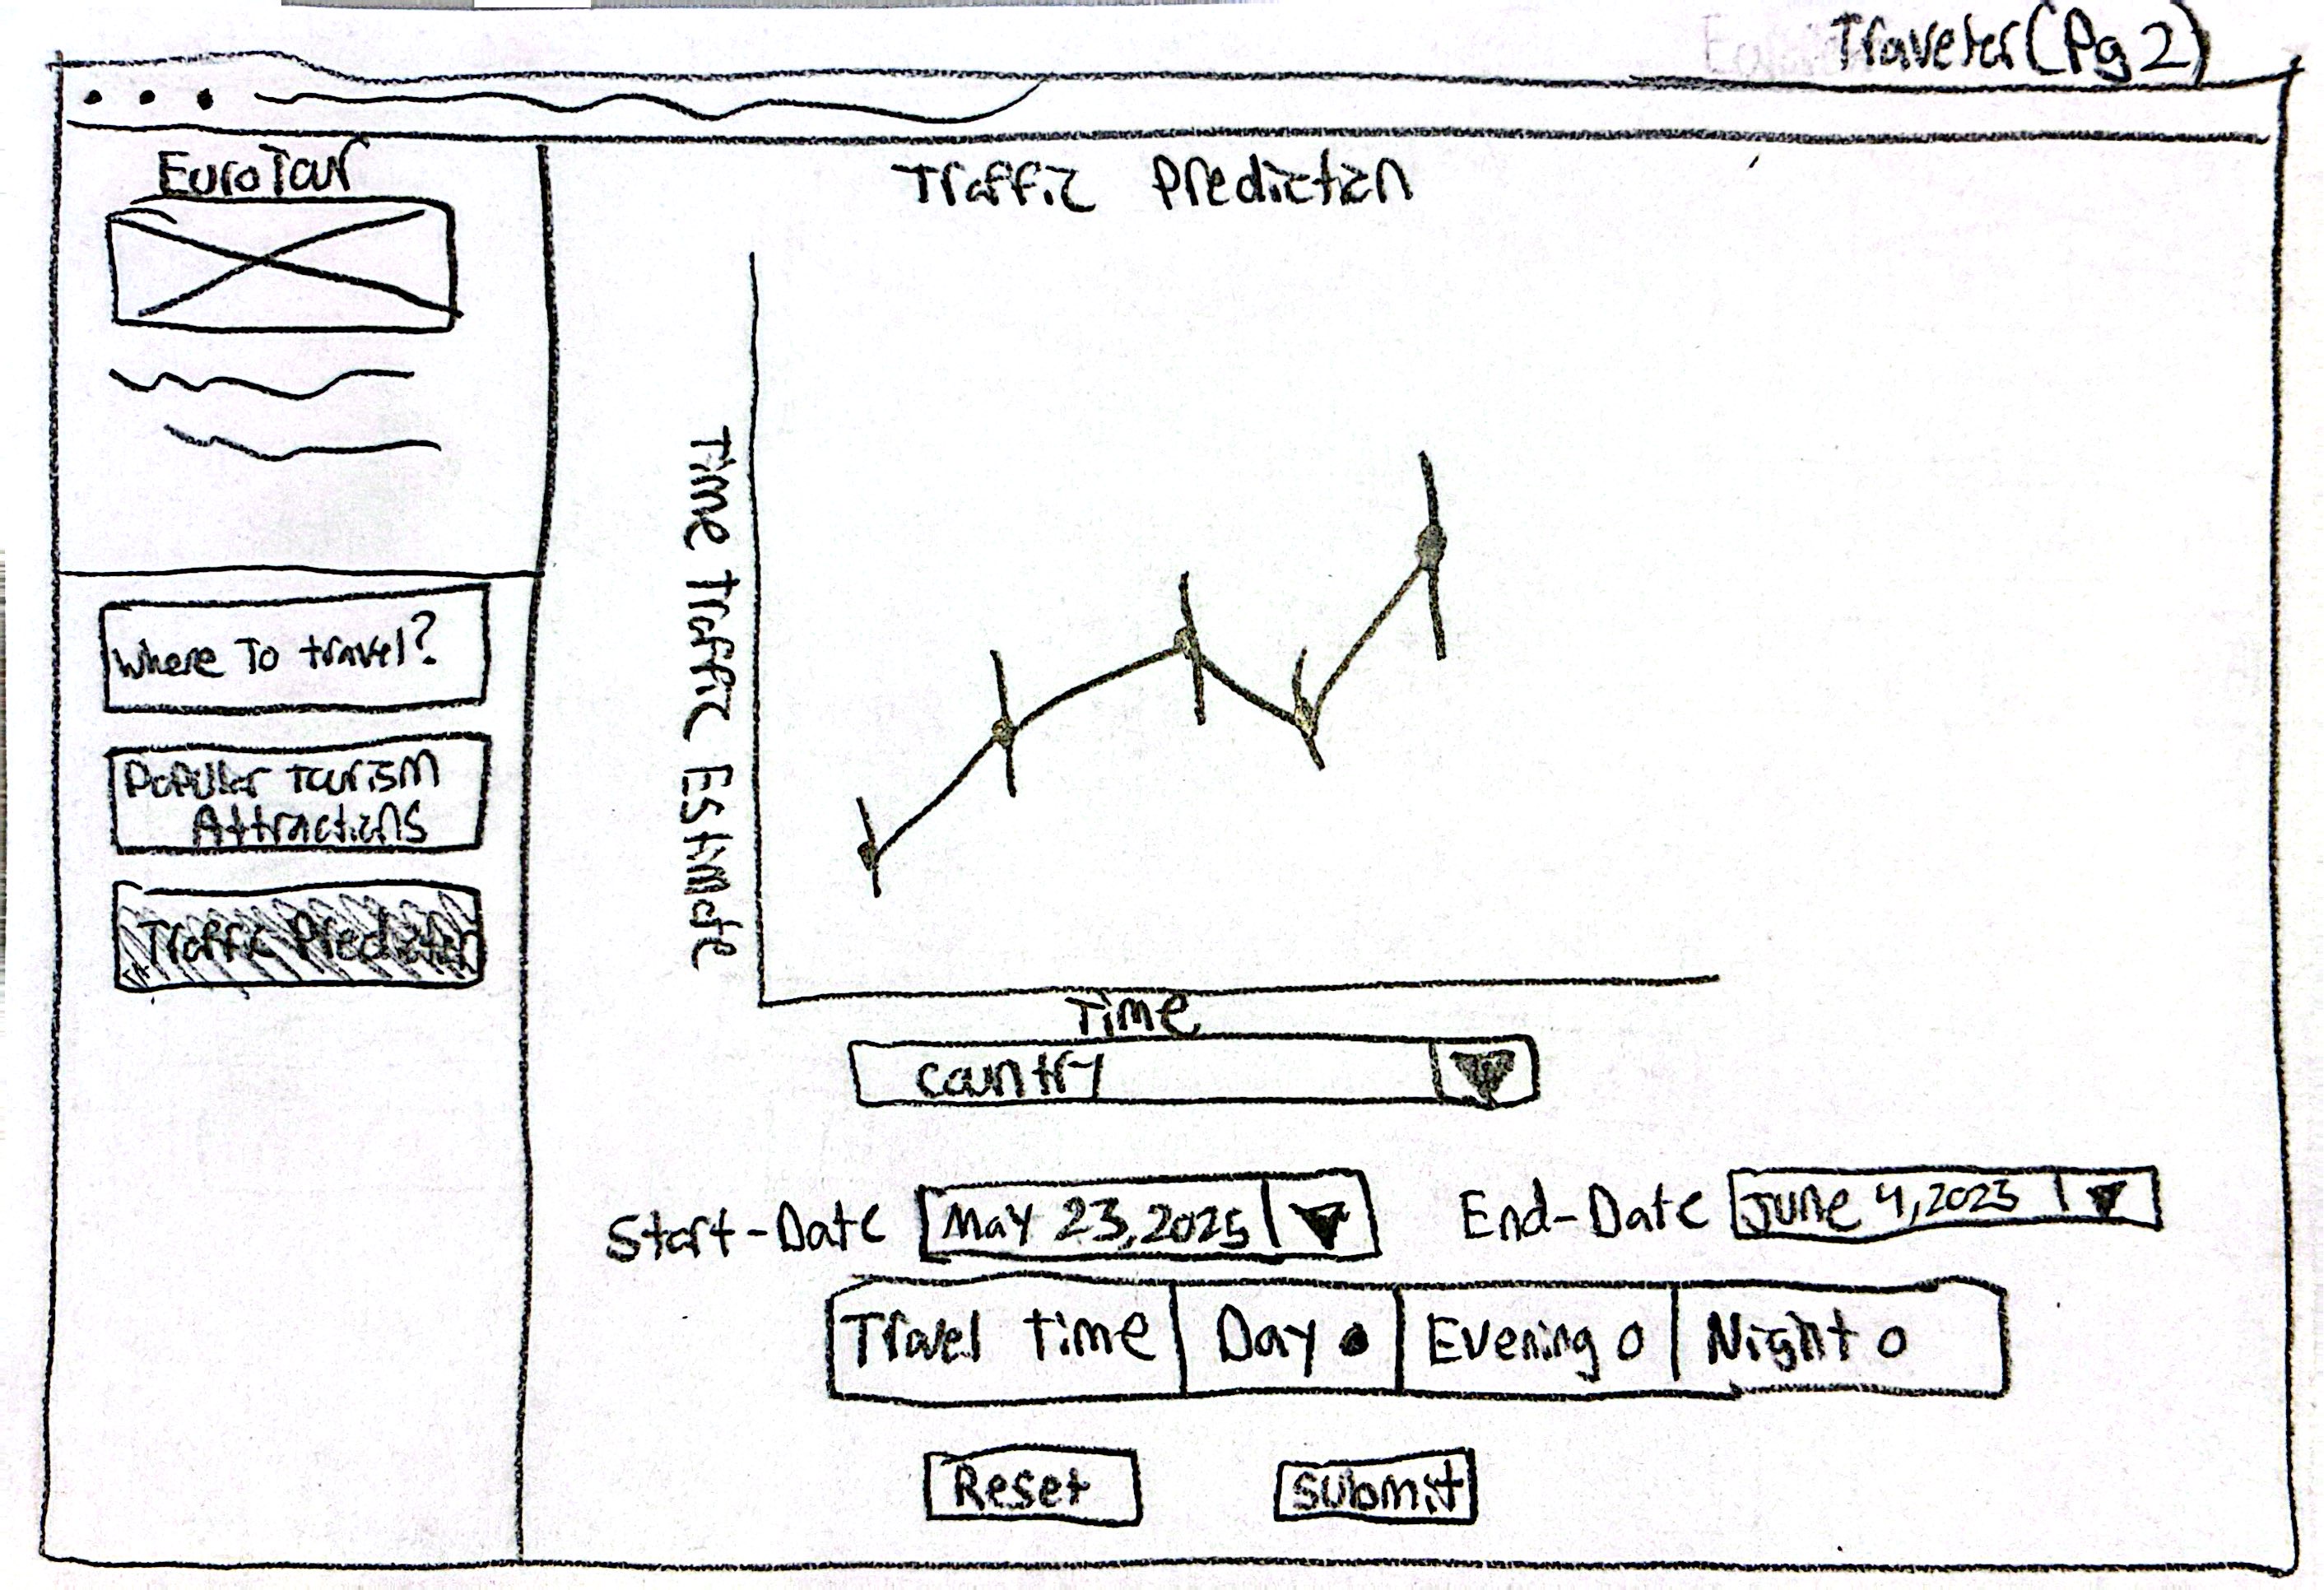 Traveler (Pg 2)
EuroTour
Traffic Prediction
Where To travel?
Popular Tourism
Attractions
Traffic Prediction
Time Traffic Estimate
Time
Country
Start-Date
May 23, 2025
End-Date
June 4, 2025
Travel time
Day
Evening
Night
Reset
Submit